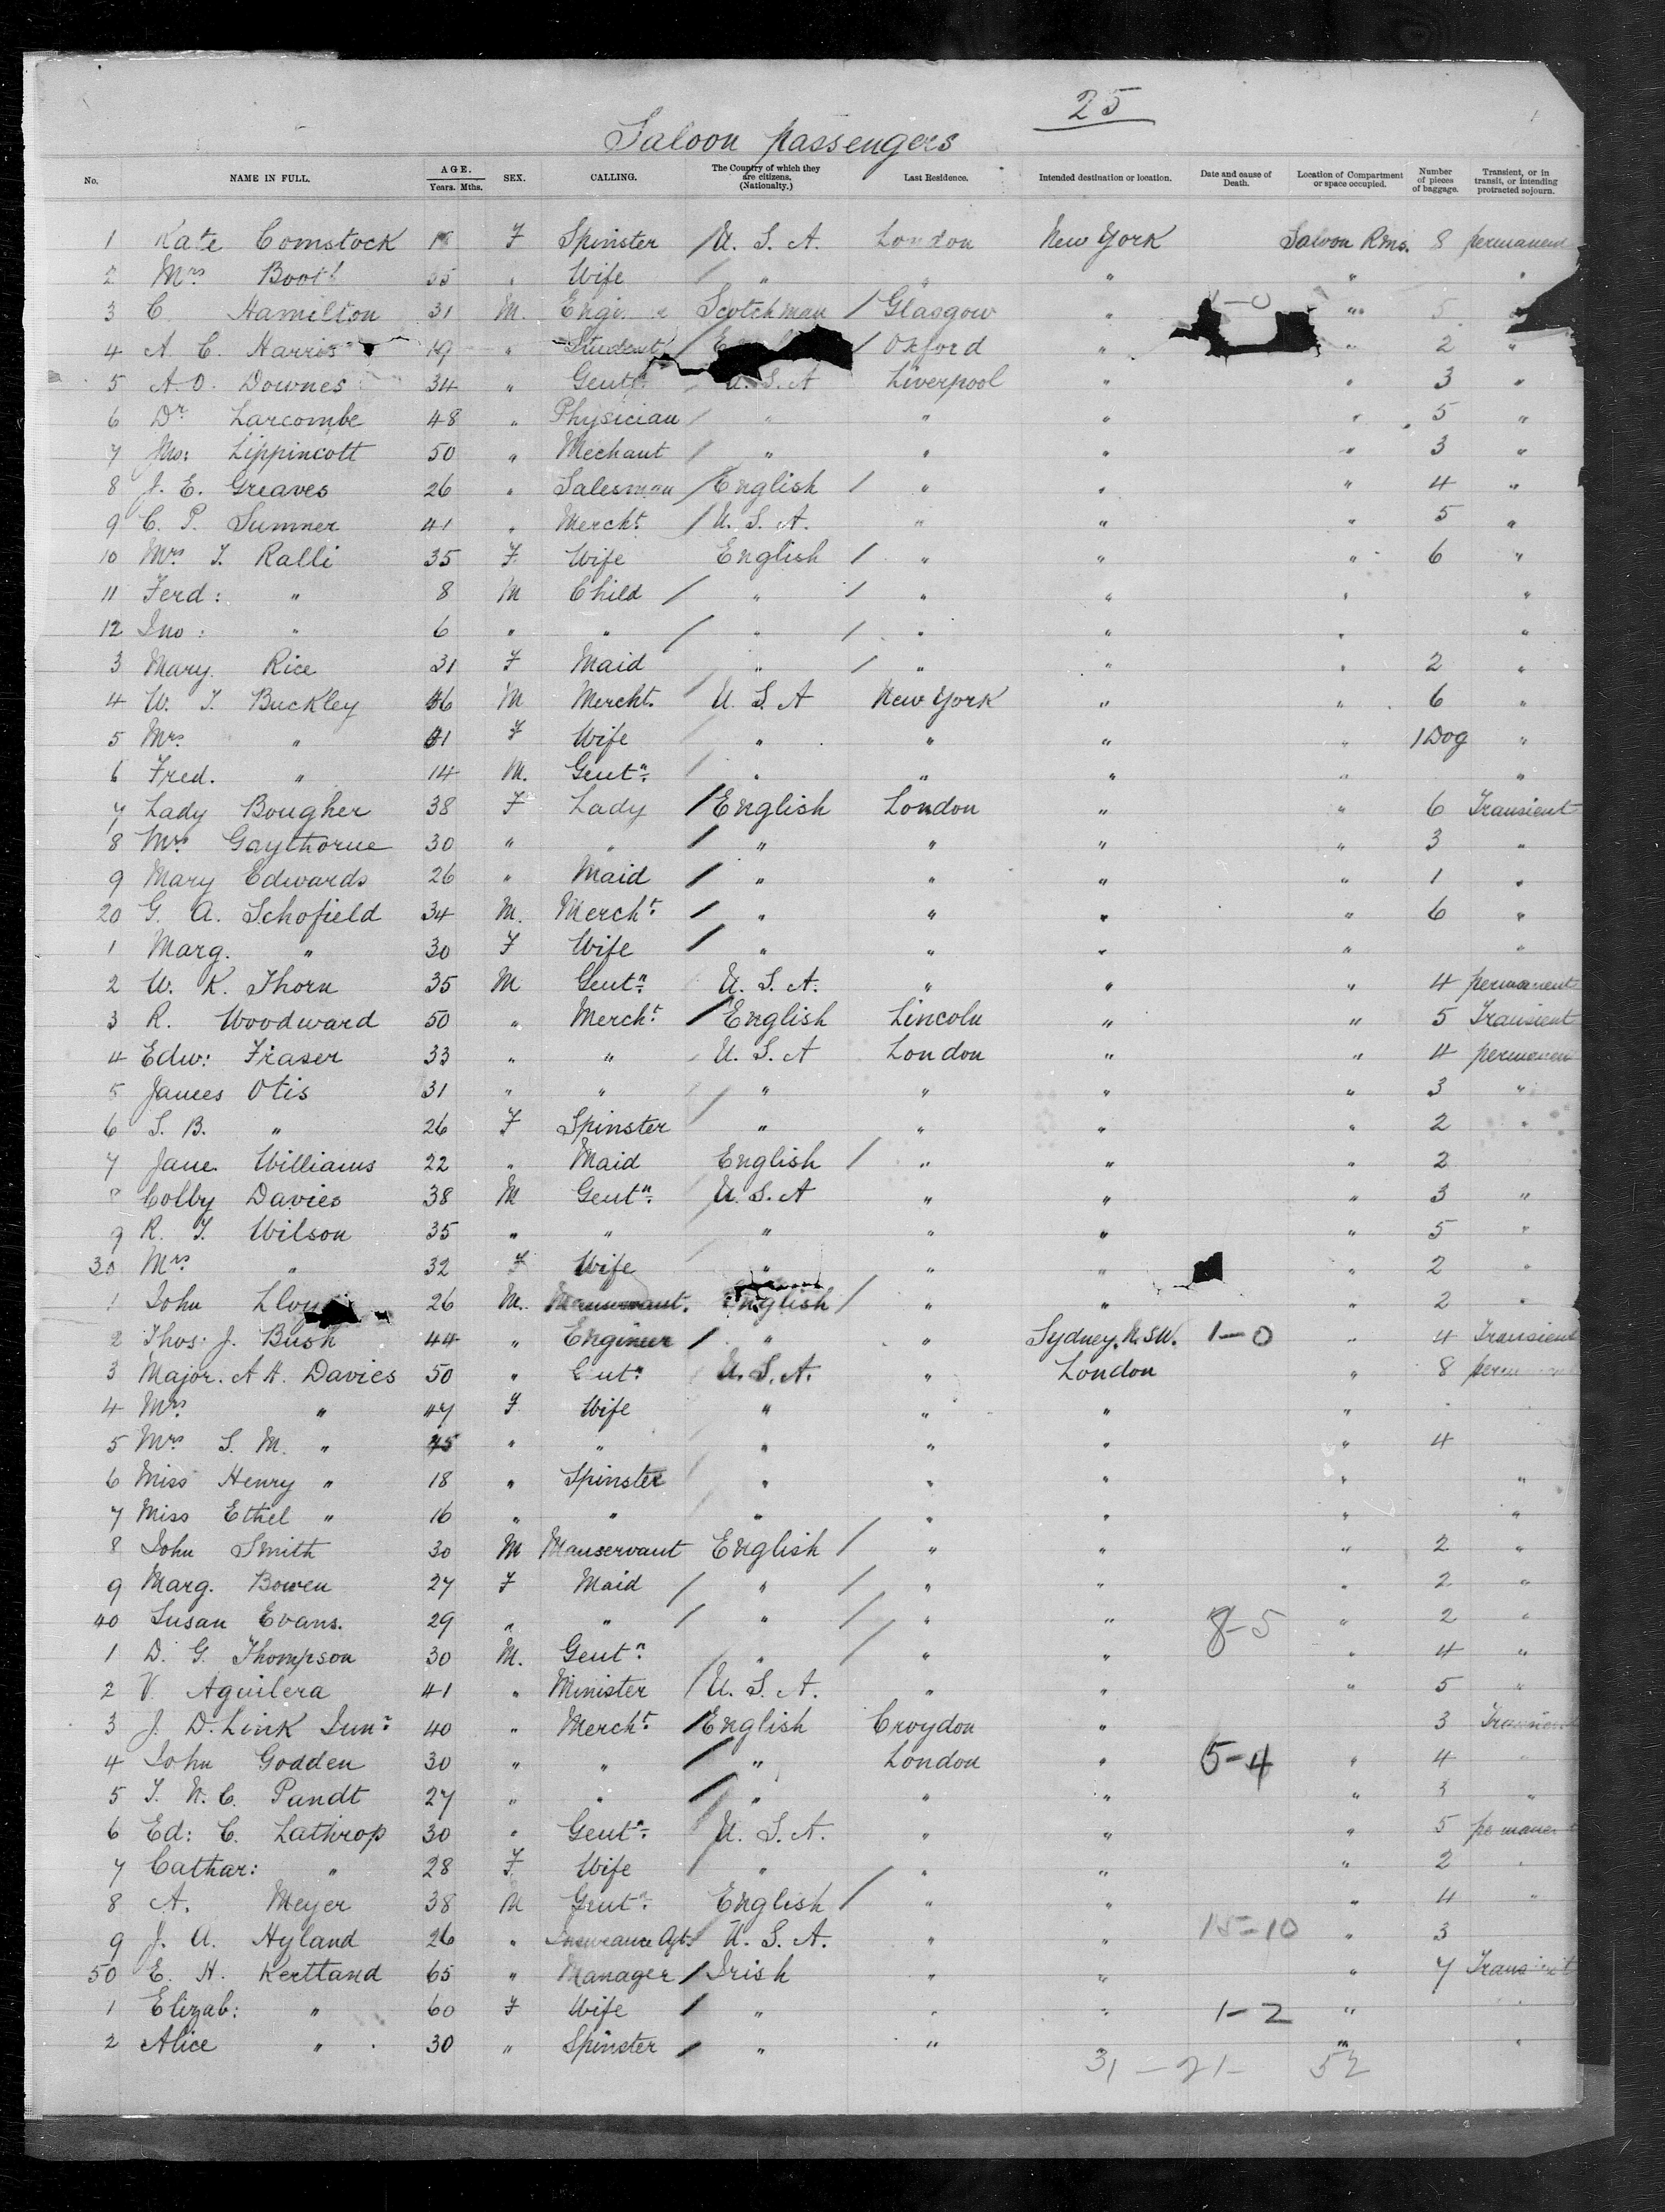 25
Saloon passengers
No. NAME IN FULL. AGE. Years. Mths. SEX. CALLING. The Country of which they are citizens. (Nationality.) Last Residence. Intended destination or location. Date and cause of Death. Location of Compartment or space occupied. Number of pieces of baggage. Transient, or in transit, or intending protracted sojourn.
1 Kate Comstock F Spinster / U. S. A. London New York Saloon Rms. 8 permanent
2 Mrs Wife / " " " " "
3 C. Hamilton 31 M. Scotchman / Glasgow " " 5 "
4 A. C. Harris 19 " Student / / Oxford " " 2 "
5 A. O. Downes 34 " Gent U. S. A Liverpool " " 3 "
6 Dr Larcombe 48 " Physician / " " " " 5 "
7 Jno: Lippincott 50 " Mechant / " " " " 3 "
8 J. E. Greaves 26 " Salesman / English / " " " 4 "
9 C. P. Sumner 41 " Mercht. / U. S. A. " " " 5 "
10 Mrs T. Ralli 35 F Wife English / " " " 6 "
11 Ferd: " 8 M Child / " / " " " "
12 Jno: " 6 " " / " / " " " "
3 Mary Rice 31 F Maid " / " " " 2 "
4 W. T. Buckley 46 M Mercht. / U. S. A New York " " 6 "
5 Mrs. " 41 F Wife / " " " " 1 Dog "
6 Fred. " 14 M. Gentn. / " " " " "
7 Lady Bougher 38 F Lady / English London " " 6 Transient
8 Mrs Gaythorne 30 " " / " " " " 3 "
9 Mary Edwards 26 " Maid / " " " " 1 "
20 G. A. Schofield 34 M. Mercht. / " " " " 6 "
1 Marg. " 30 F Wife / " " " " "
2 W. K. Thorn 35 M Gentn. U. S. A. " " " 4 permanent
3 R. Woodward 50 " Mercht. / English Lincoln " " 5 Transient
4 Edw: Fraser 33 " " / U. S. A London " " 4 permanen
5 James Otis 31 " " / " " " " 3 "
6 S. B. " 26 F Spinster / " " " " 2 "
7 Jane Williams 22 " Maid English / " " " 2
8 Colby Davies 38 M Gentn. / U. S. A " " " 3 "
9 R. T. Wilson 35 " " / " " " " 5 "
30 Mrs " 32 F Wife " " " " 2 "
1 John 26 M. Manservant. English / " " " 2 "
2 Thos. J. Bush 44 " Engineer / " " Sydney, N.S.W. 1-0 " 4 Transient
3 Major. A H. Davies 50 " / U. S. A. " London " 8
4 Mrs " 47 F Wife " " " "
5 Mrs S. M. " 45 " " " " " " 4
6 Miss Henry " 18 " Spinster / " " " " "
7 Miss Ethel " 16 " " / " " " " "
8 John Smith 30 M Manservant English / " " " 2 "
9 Marg. Bowen 27 F Maid / " / " " " 2 "
40 Susan Evans. 29 " " / " / " " 8-5 " 2 "
1 D. G. Thompson 30 M. Gentn. / " / " " " 4 "
2 V. Aguilera 41 " Minister / U. S. A. " " " 5 "
3 J. D. Link Junr. 40 " Mercht. / English Croydon " 3 Transient
4 John Godden 30 " " / " London " 5-4 " 4 "
5 T. N. C. Pandt 27 " " / " " " " 3 "
6 Ed: C. Lathrop 30 " Gentn. / U. S. A. " " " 5
7 Cathar: " 28 F. Wife / " " " " 2 "
8 A. Meyer 38 M Gentn. English / " " " 4 "
9 J. A. Hyland 26 " Insurance Agt. / U. S. A. " " 15-10 " 3
50 E. H. Kertland 65 " Manager / Irish " " " 7
1 Elizab: " 60 F Wife / " " " 1-2 "
2 Alice " 30 " Spinster / " " " " "
31 - 21 - 52